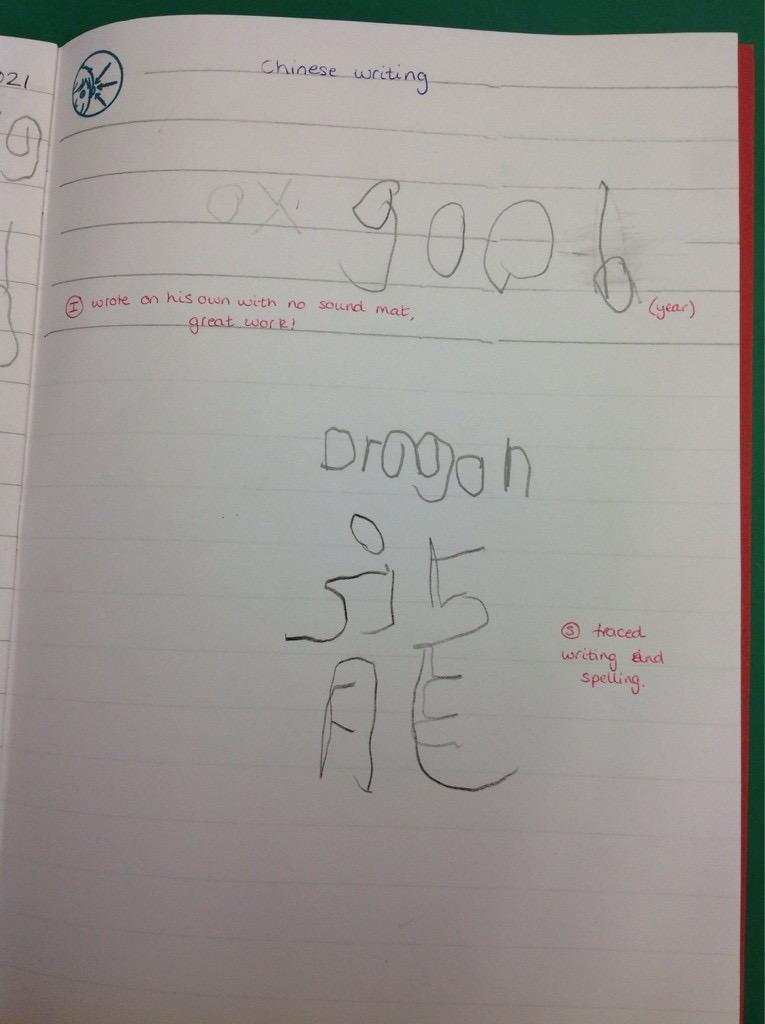 021
Chinese writing
ox
(I) wrote on his own with no sound mat, (year)
great work!
Dragon
(S) traced
writing and
spelling.